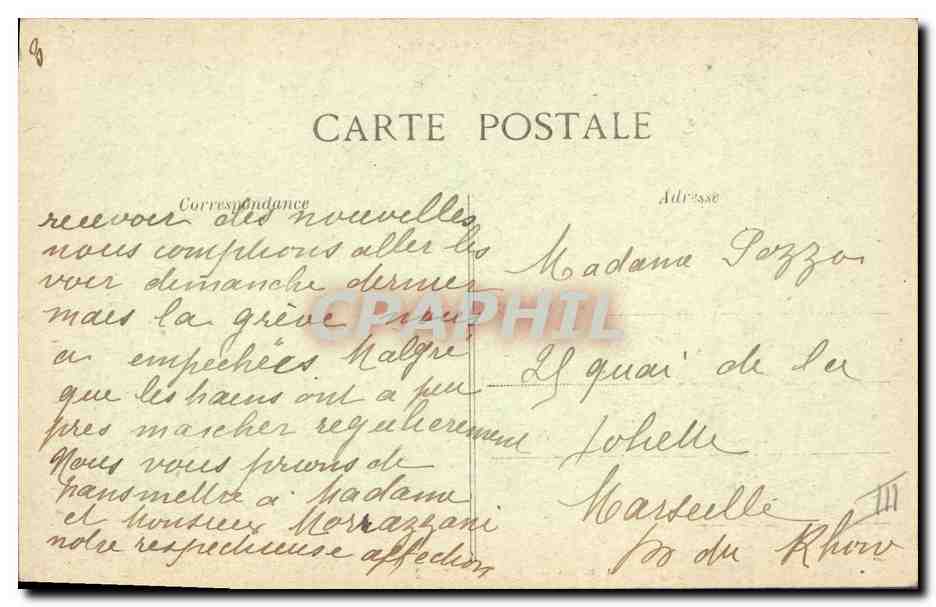 CARTE POSTALE
Correspondance
recevoir des nouvelles
nous comptions aller les
voir dimanche dernier
mais la grève nous
a empechées Malgré
que les trains ont a peu
près marcher regulierement
Nous vous prions de
transmettre a Madame
et Monsieur Morrazzani
notre respectueuse affection
Adresse
Madame Pozzo
25 quai de la
Joliette
Marseille
du Rhone
III
CPAPHIL